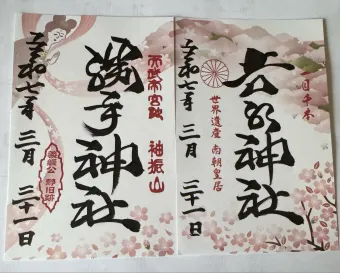 一目千本
吉水神社
世界遺産 南朝皇居
令和七年 三月 三十一日
袖振山
勝手神社
令和七年 三月 三十一日